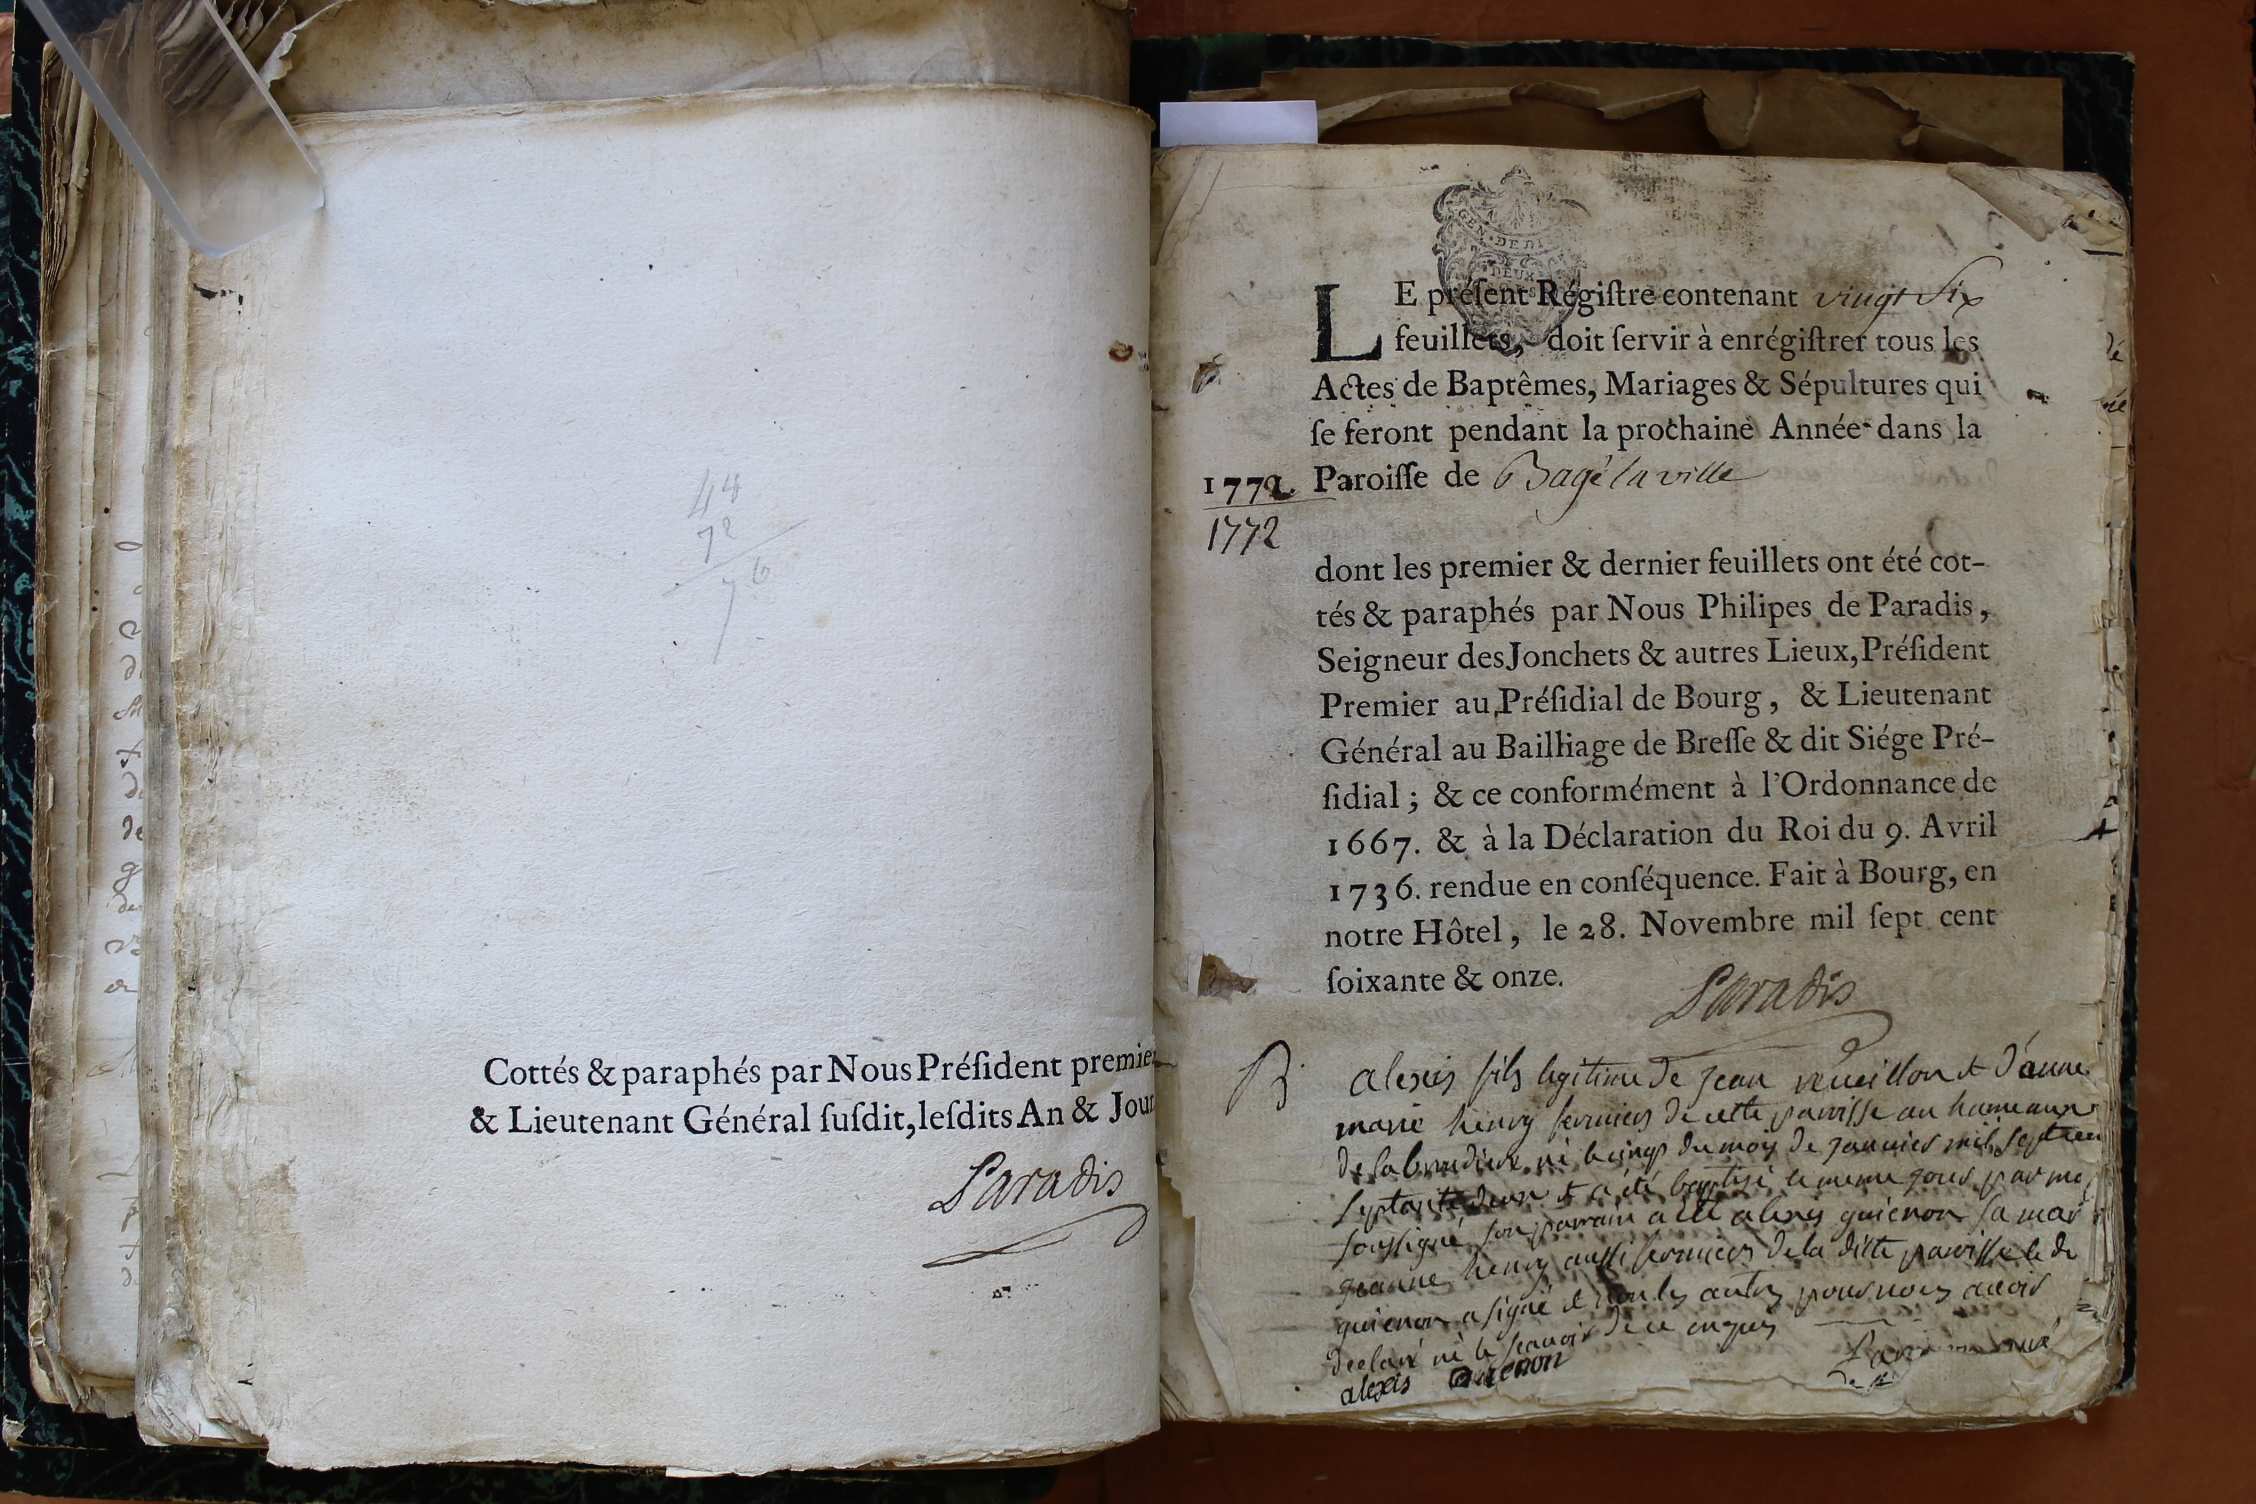 44
72
76
Cottés & paraphés par Nous Préſident premier
& Lieutenant Général ſuſdit, leſdits An & Jour
Paradis
GEN. DE DI
DEUX
LE préſent Régiſtre contenant vingt Six
feuillets, doit ſervir à enrégiſtrer tous les
Actes de Baptêmes, Mariages & Sépultures qui
ſe feront pendant la prochaine Année dans la
1772. Paroiſſe de Bagé la ville
1772
dont les premier & dernier feuillets ont été cot-
tés & paraphés par Nous Philipes de Paradis,
Seigneur des Jonchets & autres Lieux, Préſident
Premier au Préſidial de Bourg, & Lieutenant
Général au Bailliage de Breſſe & dit Siége Pré-
ſidial ; & ce conformément à l'Ordonnance de
1667. & à la Déclaration du Roi du 9. Avril
1736. rendue en conſéquence. Fait à Bourg, en
notre Hôtel, le 28. Novembre mil ſept cent
ſoixante & onze.
Paradis
B. alexis fils legitime de jean reveillon & d'anne
marie henry fermiers de cette paroisse au hameaux
né le cinq du mois de janvier mil sept cen
septante deux & a été baptisé le meme jour par moy
soussigné son parrain a été alexis guienon sa mar
jeanne henry aussi fermiers de la ditte paroisse le dt
guienon a signé & non les autres pour nous avoir
declaré ne le scavoir de ce enquis
alexis Guienon